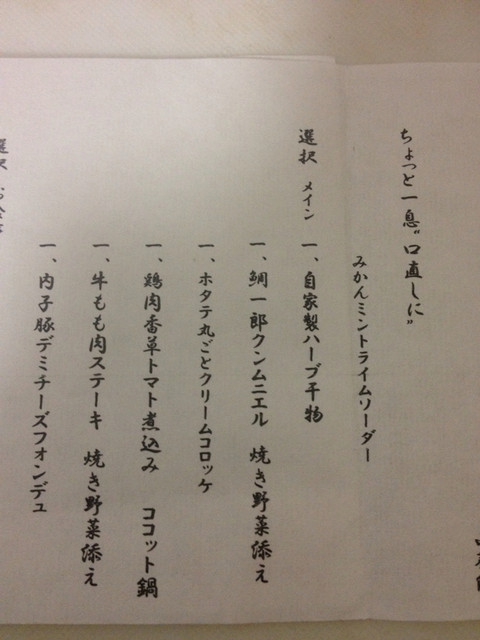 ちょっと一息〝口直しに〟
みかんミントライムソーダー
選択 メイン 一、自家製ハーブ干物
一、鯛一郎クンムニエル 焼き野菜添え
一、ホタテ丸ごとクリームコロッケ
一、鶏肉香草トマト煮込み ココット鍋
一、牛もも肉ステーキ 焼き野菜添え
一、内子豚デミチーズフォンデュ
選択